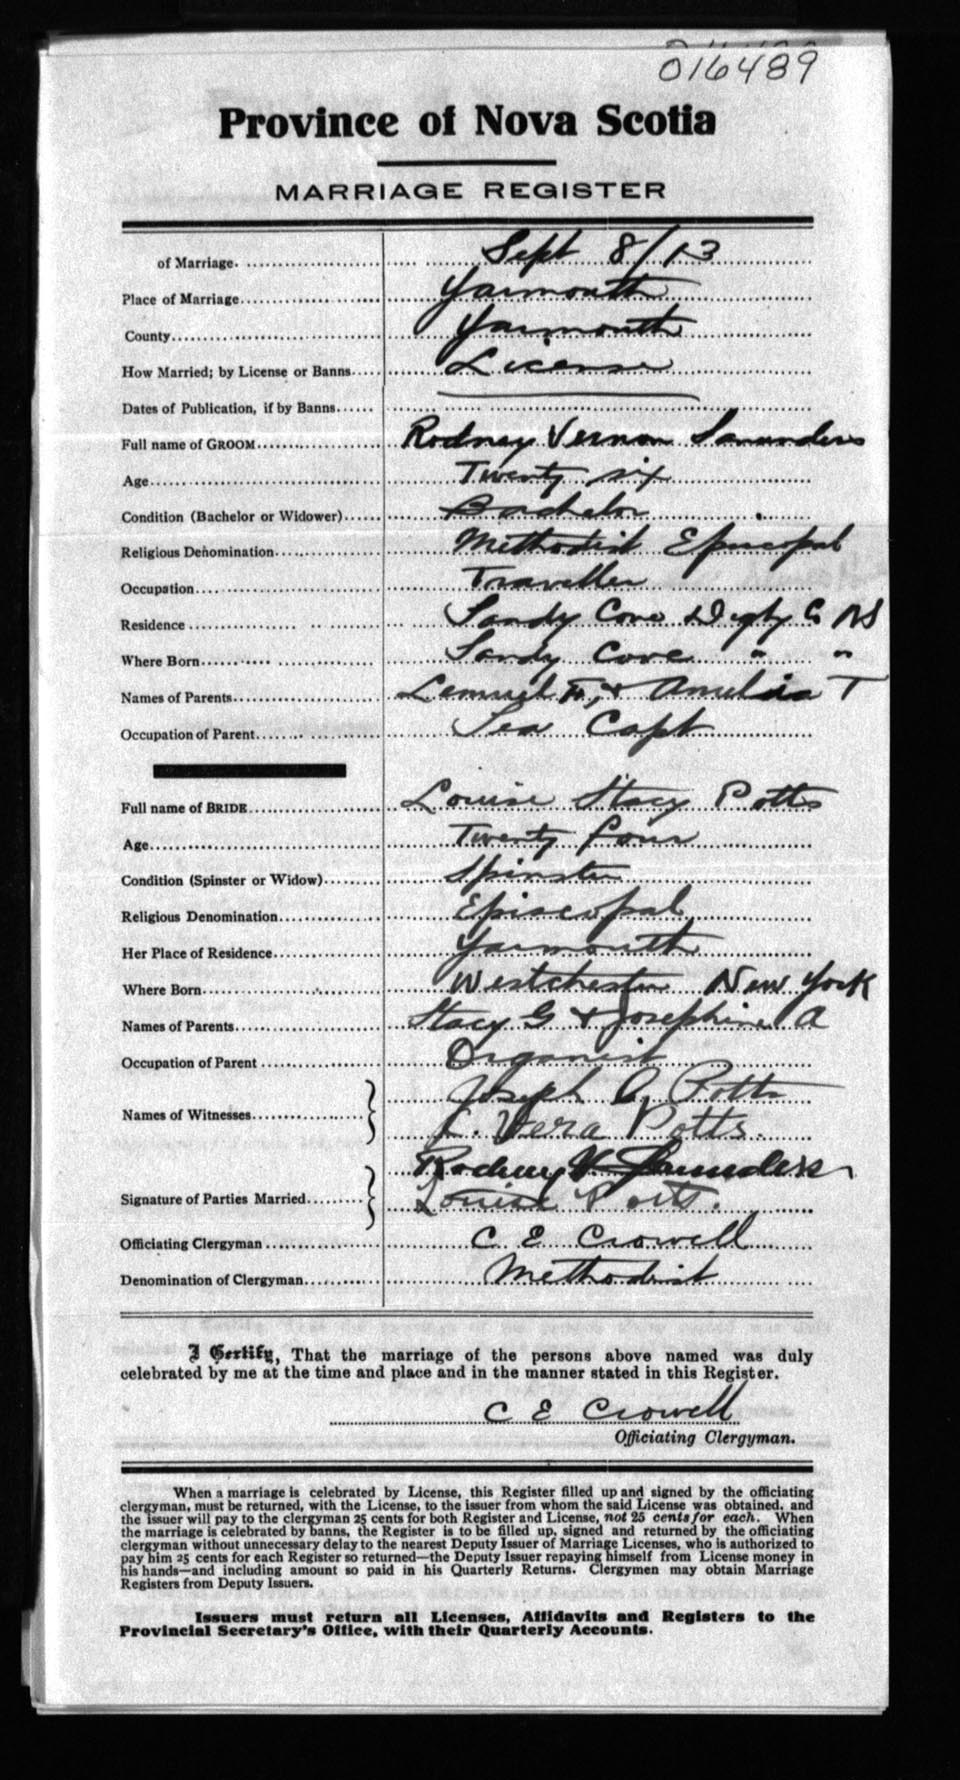 016489
Province of Nova Scotia
MARRIAGE REGISTER
of Marriage. Sept 8/13
Place of Marriage Yarmouth
County Yarmouth
How Married; by License or Banns License
Dates of Publication, if by Banns
Full name of GROOM Rodney Vernon Saunders
Age Twenty six
Condition (Bachelor or Widower) Bachelor
Religious Denomination Methodist Episcopal
Occupation Traveller
Residence Sandy Cove Digby Co NS
Where Born Sandy Cove " "
Names of Parents Lemuel F, & Amelia T
Occupation of Parent Sea Capt
Full name of BRIDE Louise Stacy Potts
Age Twenty four
Condition (Spinster or Widow) Spinster
Religious Denomination Episcopal
Her Place of Residence Yarmouth
Where Born Westchester New York
Names of Parents Stacy G & Josephine A
Occupation of Parent Organist
Names of Witnesses Joseph A. Potts
L. Vera Potts.
Signature of Parties Married Rodney V Saunders
Louise Potts.
Officiating Clergyman C E Crowell
Denomination of Clergyman Methodist
I Certify, That the marriage of the persons above named was duly
celebrated by me at the time and place and in the manner stated in this Register.
C E Crowell
Officiating Clergyman.
When a marriage is celebrated by License, this Register filled up and signed by the officiating
clergyman, must be returned, with the License, to the issuer from whom the said License was obtained, and
the issuer will pay to the clergyman 25 cents for both Register and License, not 25 cents for each. When
the marriage is celebrated by banns, the Register is to be filled up, signed and returned by the officiating
clergyman without unnecessary delay to the nearest Deputy Issuer of Marriage Licenses, who is authorized to
pay him 25 cents for each Register so returned—the Deputy Issuer repaying himself from License money in
his hands—and including amount so paid in his Quarterly Returns. Clergymen may obtain Marriage
Registers from Deputy Issuers.
Issuers must return all Licenses, Affidavits and Registers to the
Provincial Secretary's Office, with their Quarterly Accounts.